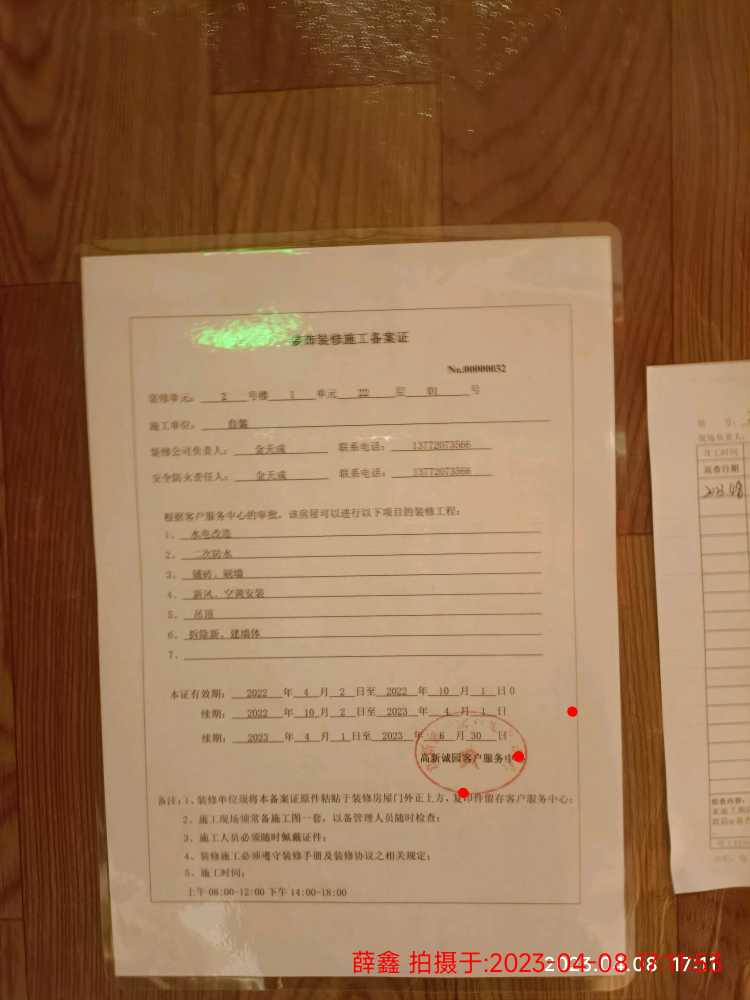 装修施工备案证
No.00000032
装修单元: 2 号楼 1 单元 22 层 号
施工单位: 自装
装修公司负责人: 金天成 联系电话: 13772073566
安全防火责任人: 金天成 联系电话: 13772073566
根据客户服务中心的审批, 该房屋可以进行以下项目的装修工程:
1、水电改造
2、二次防水
3、铺砖、刷墙
4、新风、空调安装
5、吊顶
6、拆除新、建墙体
7、
本证有效期: 2022 年 4 月 2 日至 2022 年 10 月 1 日0
续期: 2022 年 10 月 2 日至 2023 年 4 月 1 日
续期: 2023 年 4 月 1 日至 2023 年 6 月 30 日
高新诚园客户服务中
备注: 1、装修单位须将本备案证原件粘贴于装修房屋门外正上方, 复印件留存客户服务中心;
2、施工现场须常备施工图一套, 以备管理人员随时检查;
3、施工人员必须随时佩戴证件;
4、装修施工必须遵守装修手册及装修协议之相关规定;
5、施工时间:
上午 08:00-12:00 下午 14:00-18:00
开工时间
巡查日期
2023.08
薛鑫 拍摄于:2023-04-08
17:11